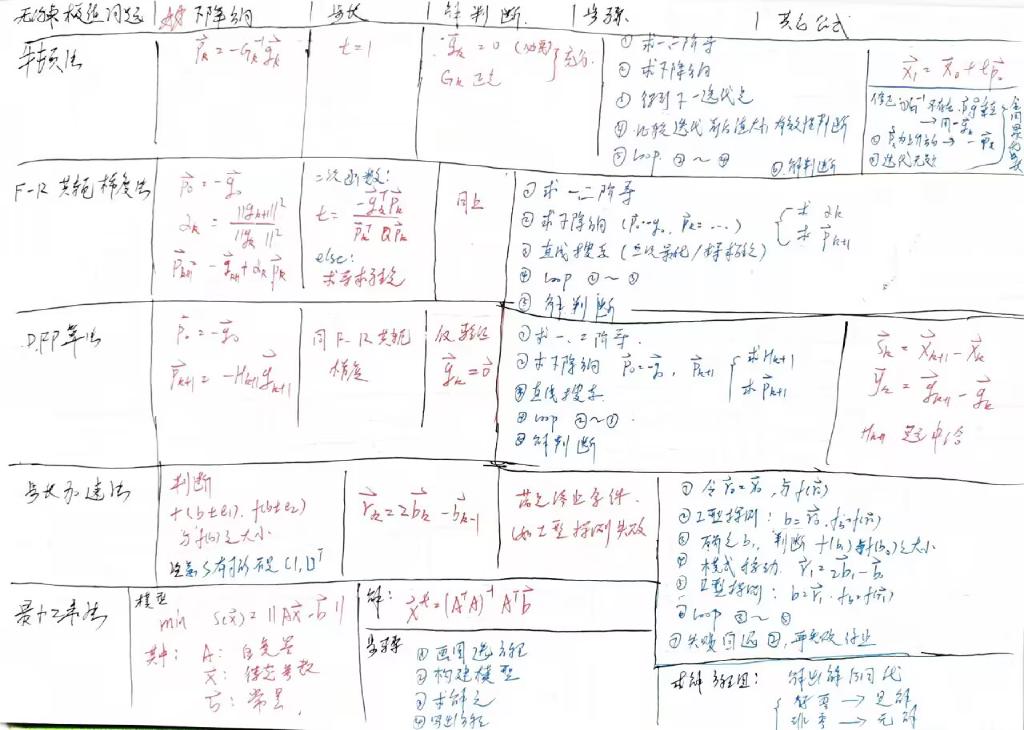 无约束极值问题 下降方向 步长 解判断 步骤 其它公式
牛顿法
p⃗k = -Gk⁻¹g⃗k
t = 1
g⃗k = 0 (必要)
Gk 正定
} 充分
① 求一二阶导
② 求下降方向
③ 得到下一迭代点
④ 比较迭代前后值大小 有效性判断
⑤ Loop ②~④
⑥ 解判断
x⃗1 = x⃗0 + tp⃗0
修正
迭代无效
F-R 共轭梯度法
p⃗0 = -g⃗0
αk = ||gk+1||² / ||gk||²
p⃗k+1 = -g⃗k+1 + αk p⃗k
二次函数:
t = -g⃗kᵀp⃗k / p⃗kᵀ Q p⃗k
else:
同上
① 求一二阶导
② 求下降方向 (p⃗0=-g0, p⃗k=...) { 求 αk
求 p⃗k+1
③ 直线搜索
④ Loop ②~③
⑤ 解判断
DFP算法
p⃗0 = -g⃗0
p⃗k+1 = -Hk+1 g⃗k+1
同 F-R 共轭
梯度
仅验证
g⃗k = 0⃗
① 求一、二阶导.
② 求下降方向 p⃗0=-g⃗0, p⃗k+1 { 求Hk+1
求p⃗k+1
③ 直线搜索
④ Loop ②~③.
⑤ 解判断
s⃗k = x⃗k+1 - x⃗k
y⃗k = g⃗k+1 - g⃗k
步长加速法
判断
f(b±e1), f(b±e2)
与f(b)之大小
r⃗k = 2b⃗k - b⃗k-1
满足停止条件.
(如Ⅰ型探测失败
① 令 r⃗0 = x⃗0, 与 f(r⃗0)
② Ⅰ型探测: b = r⃗0, fb=f(r⃗0)
③ 确定b1, 判断 f(b1)与f(b0)之大小
④ 模式移动 r⃗1 = 2b⃗1 - b⃗0
⑤ Ⅱ型探测: b = r⃗1, fb=f(r⃗1)
⑥ Loop
⑦ 失败回退②, 再失败停止
最小二乘法
模型
min S(x⃗) = ||Ax⃗ - b⃗||
其中: A: 自变量
x⃗: 待定参数
b⃗: 常量.
解:
x⃗* = (AᵀA)⁻¹ Aᵀb⃗
步骤
① 画图选方程
② 构建模型
③ 求解之
④ 写出方程
求解方程组: 解出解后回代